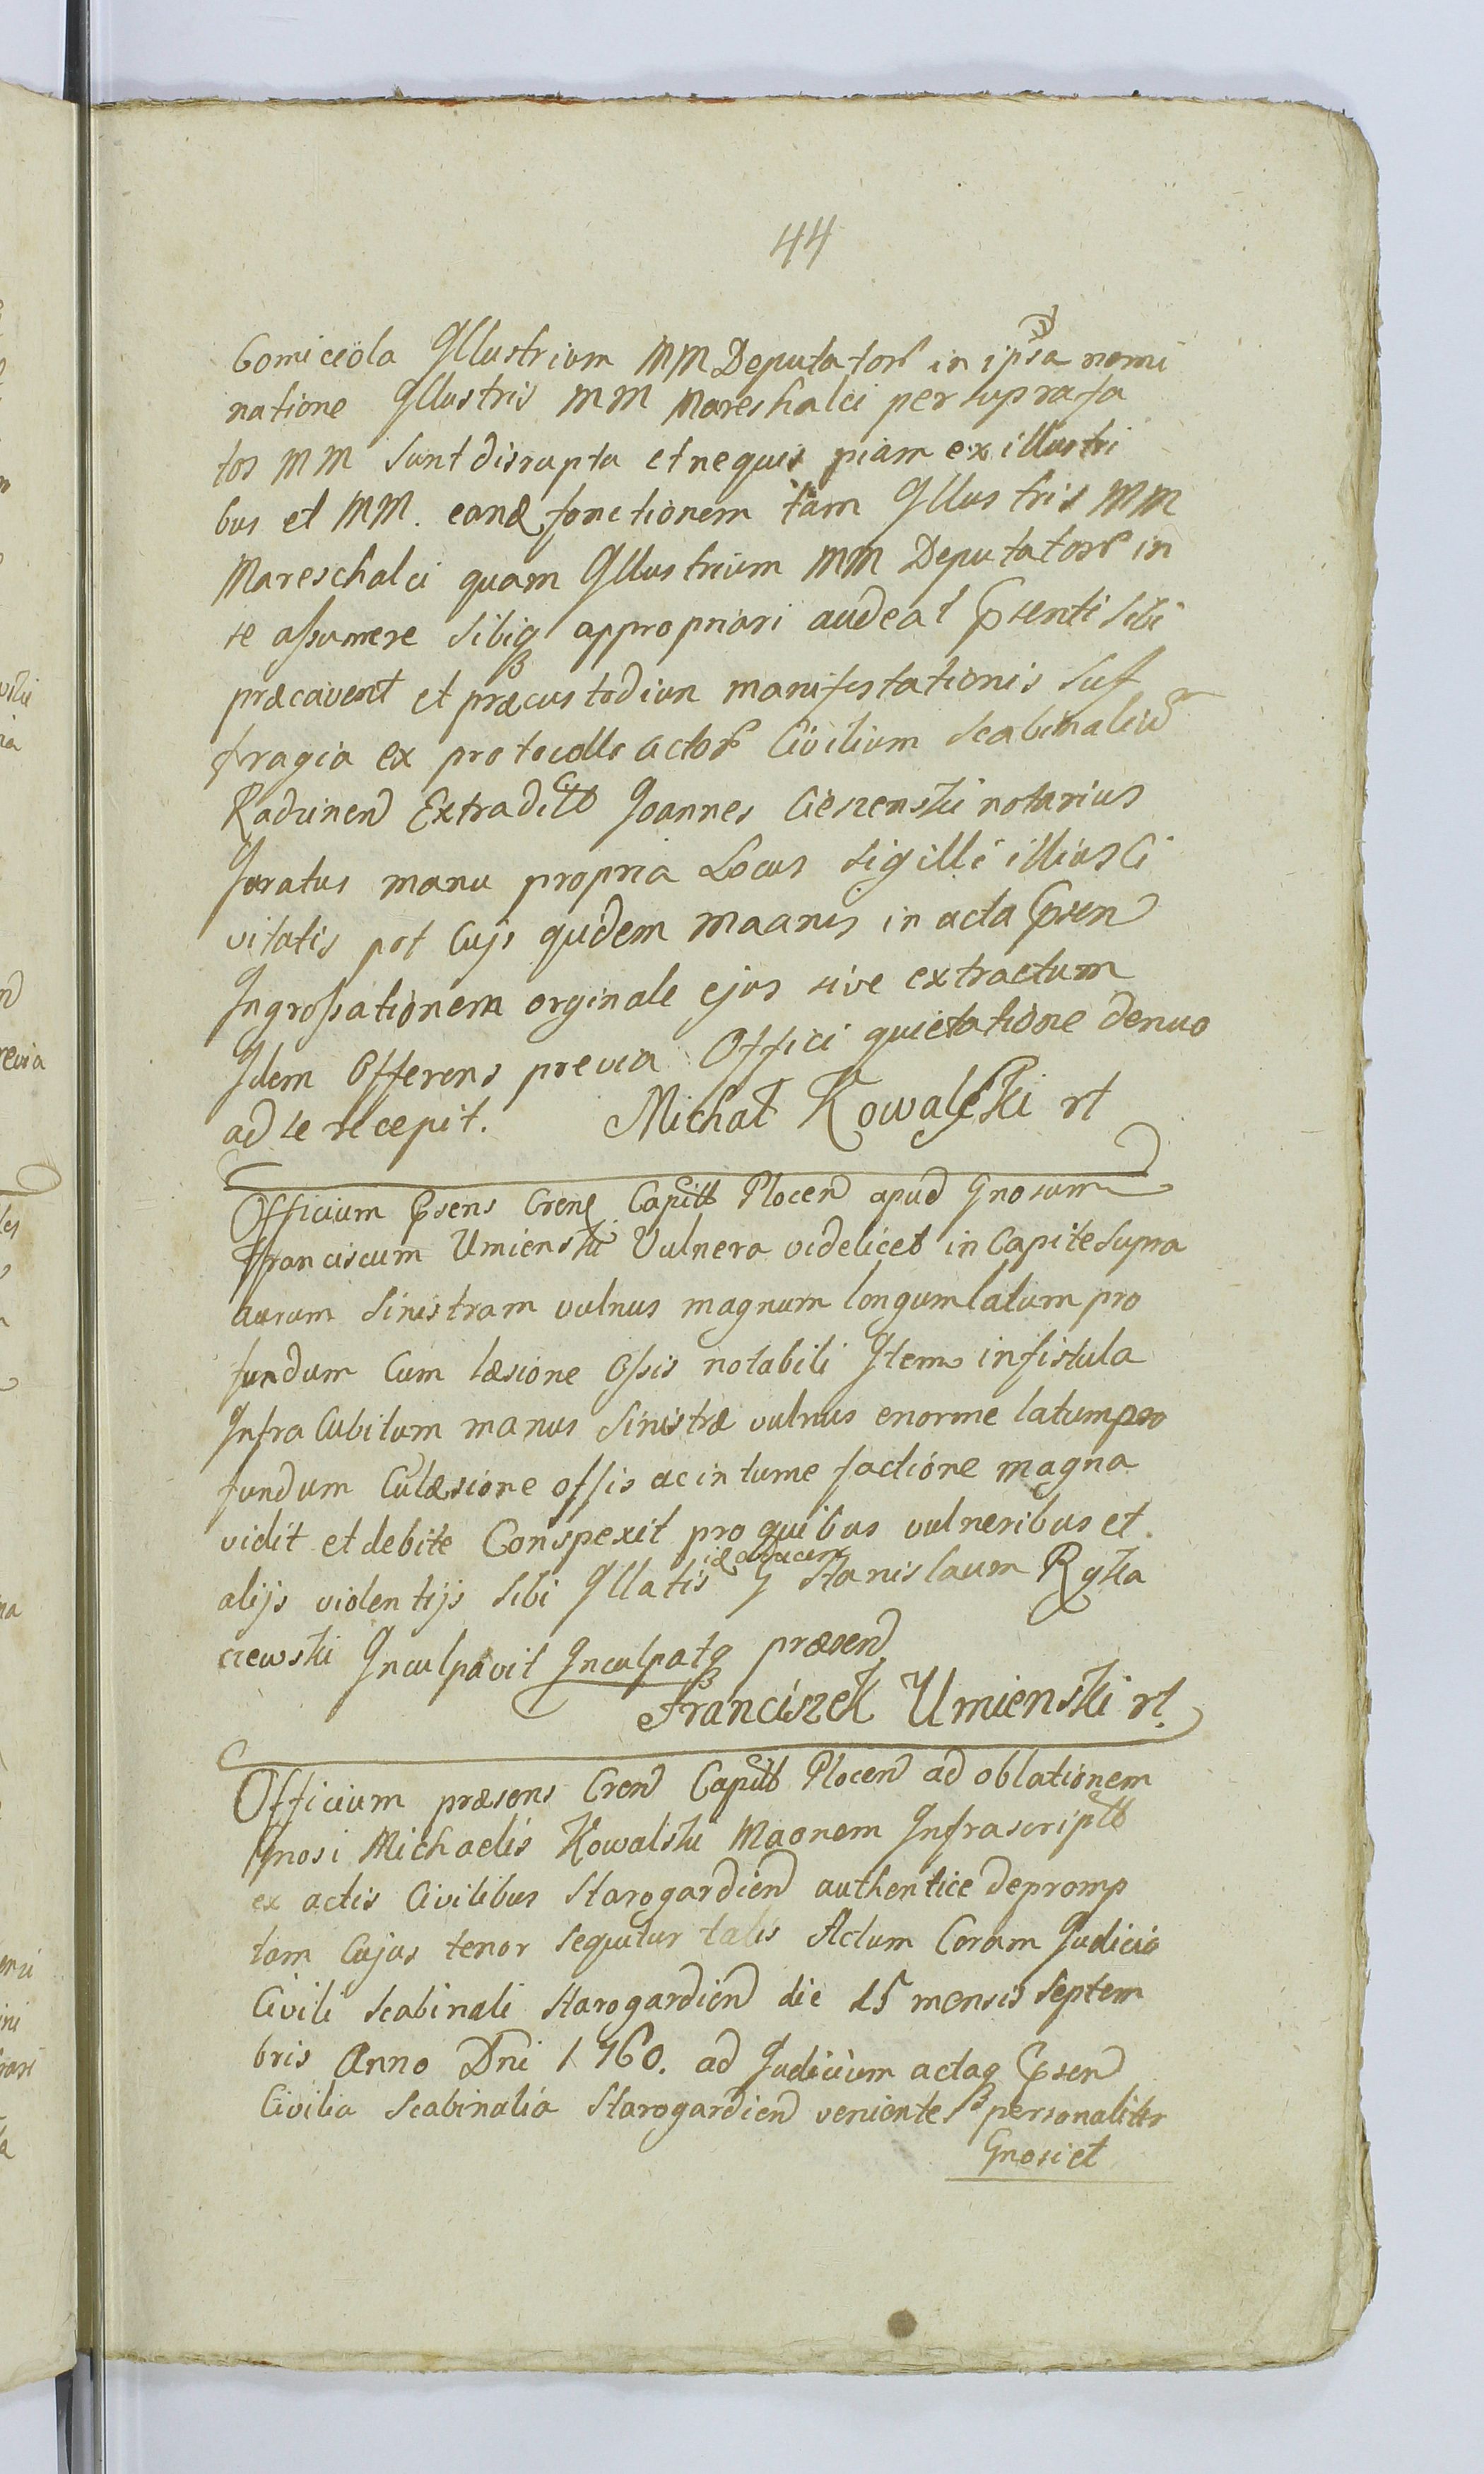 44
Comiceola Illustrium MM Deputator in ipsa nomi
natione Illustris MM Mareschalci per suprafa
tos MM sunt disrupta et nequis piam ex illustri
bus et MM. eand functionem tam Illustris MM
Mareschalci quam Illustrium MM Deputator in
se assumere sibiq appropriari audeat Psenti sibi
præcavent et præcustodiun manifestationis suf
fragia ex protocollo actor Civilium Scabinaliu
Radzinen Extradit Joannes Cieszenski notarius
Juratus manu propria Locus Sigilli illius Ci
vitatis pot Cujs qudem Maanis in acta Psen
Ingrossationem orginale ejus sive extractum
Idem Offerens previa Offici quietatione denuo
ad se recepit. Michał Kowalski rt
Officium Psens Crene Capitt Plocen apud Gnosum
Franciscum Umienski Vulnera videlicet in Capite supra
aurum sinistram vulnus magnum longum latum pro
fundum Cum læsione Ossis notabili Item in fistula
Infra Cubitum manus Sinistræ vulnus enorme latum pro
fundum Cu læsione ossis ac intume factione magna
vidit et debite Conspexit pro quibus vulneribus et
alijs violentijs sibi Illatis G Stanislaum Ryka
czewski Inculpavit Inculpatq præsen
Franciszek Umienski rt.
Officium præsens Cren Capitt Plocen ad oblationem
Gnosi Michaelis Kowalski Maonem Infrascriptt
ex actis Civilibus Starogardien authentice depromp
tam Cujus tenor sequitur talis Actum Coram Judicio
Civili Scabinali Starogardien die 15 mensis Septem
bris Anno Dni 1760. ad Judicium actaq Psen
Civilia Scabinalia Starogardien venientes personaliter
Gnosi et